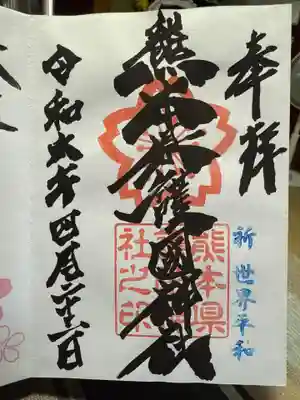 奉拝
祈世界平和
熊本縣護國神社
熊本県
護國神
社之印
令和六年四月二十一日